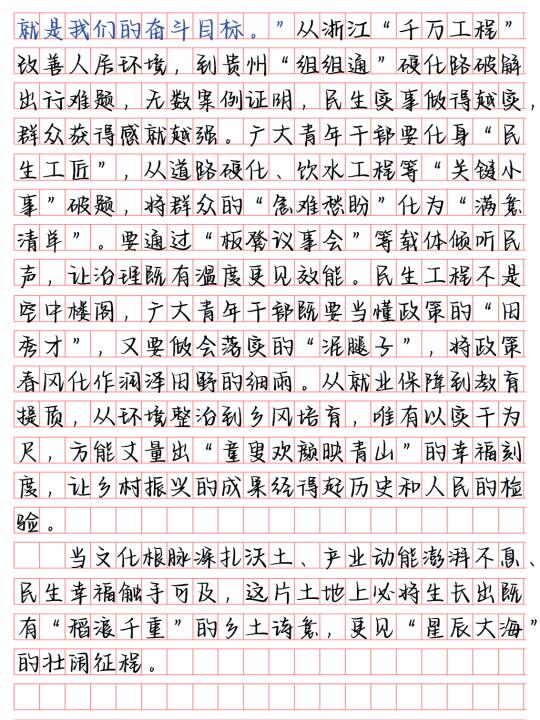 就是我们的奋斗目标。”从浙江“千万工程”
改善人居环境，到贵州“组组通”硬化路破解
出行难题，无数案例证明，民生实事做得越实，
群众获得感就越强。广大青年干部要化身“民
生工匠”，从道路硬化、饮水工程等“关键小
事”破题，将群众的“急难愁盼”化为“满意
清单”。要通过“板凳议事会”等载体倾听民
声，让治理既有温度更见效能。民生工程不是
空中楼阁，广大青年干部既要当懂政策的“田
秀才”，又要做会落实的“泥腿子”，将政策
春风化作润泽田野的细雨。从就业保障到教育
提质，从环境整治到乡风培育，唯有以实干为
尺，方能丈量出“童叟欢颜映青山”的幸福刻
度，让乡村振兴的成果经得起历史和人民的检
验。
当文化根脉深扎沃土、产业动能澎湃不息、
民生幸福触手可及，这片土地上必将生长出既
有“稻浪千重”的乡土诗意，更见“星辰大海”
的壮阔征程。